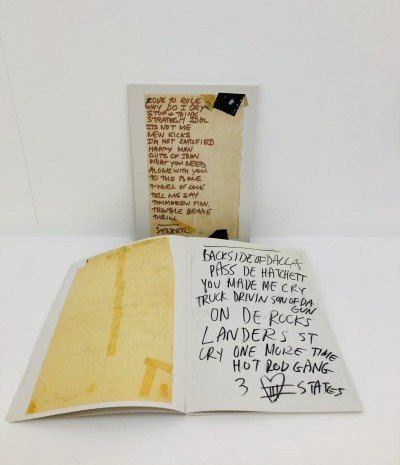 LOVE TO RULE
WHY DO I CRY
STOP & THINK
STRATEGY IDOL
ITS NOT ME
NEW KICKS
IM NOT SATISFIED
HAPPY MAN
GUTS OF IRON
WHAT YOU NEED
ALONE WITH YOU
TO THE BONE
TUNNEL OF LOVE
TELL ME SAY
TOMMORROW
TROUBLE BRAKE
THRILL
BACKSIDE OF DALLA
PASS DE HATCHETT
YOU MADE ME CRY
TRUCK DRIVIN SON OF DA
GUN
ON DE ROCKS
LANDERS ST
CRY ONE MORE TIME
HOT ROD GANG
3 STATES